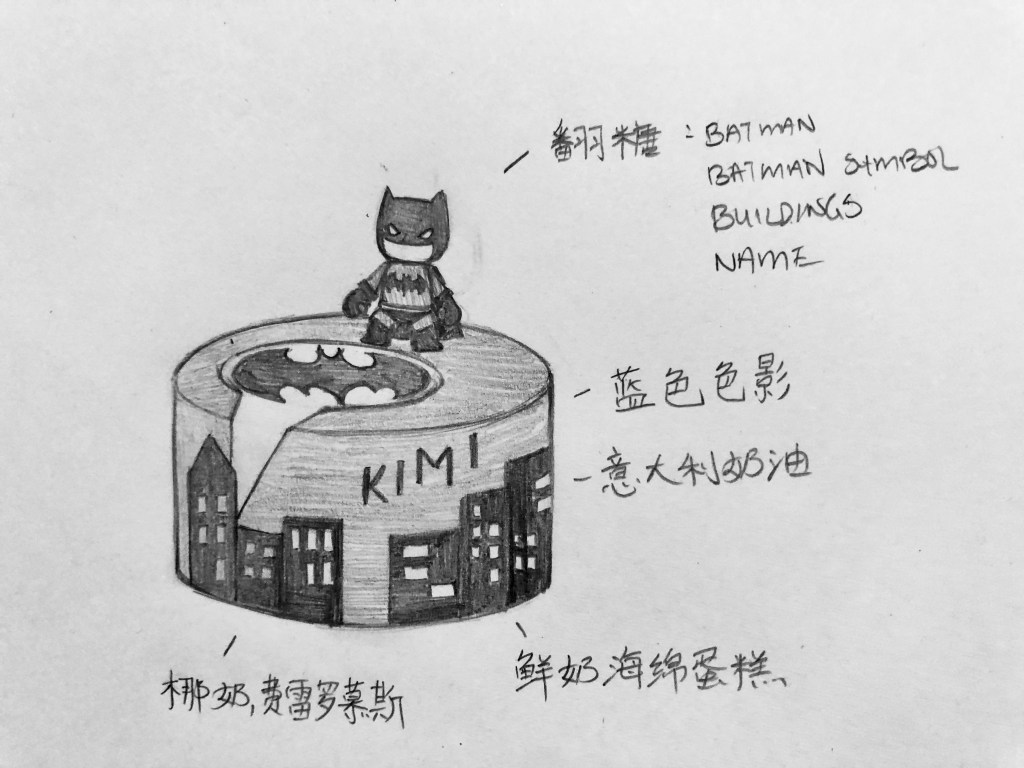 翻羽糖 : BATMAN
BATMAN SYMBOL
BUILDINGS
NAME
KIMI
- 蓝色色影
- 意大利奶油
鲜奶海绵蛋糕
梛奶,费雷罗慕斯